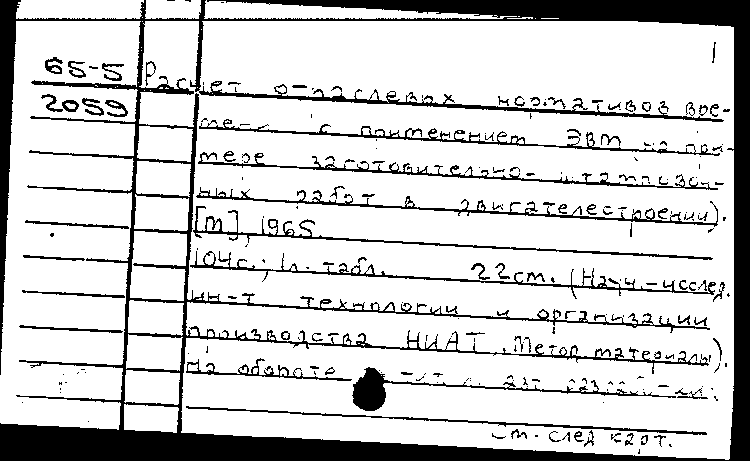 1
65-5 Расчет отраслевых нормативов вре-
2059 мени с применением ЭВМ на при-
мере заготовительно-штамповоч-
ных работ в двигателестроении).
[М], 1965.
104с.; 1л. табл. 22см. (Науч.-исслед.
ин-т технологии и организации
производства НИАТ. Метод. материалы).
На обороте
См. след карт.